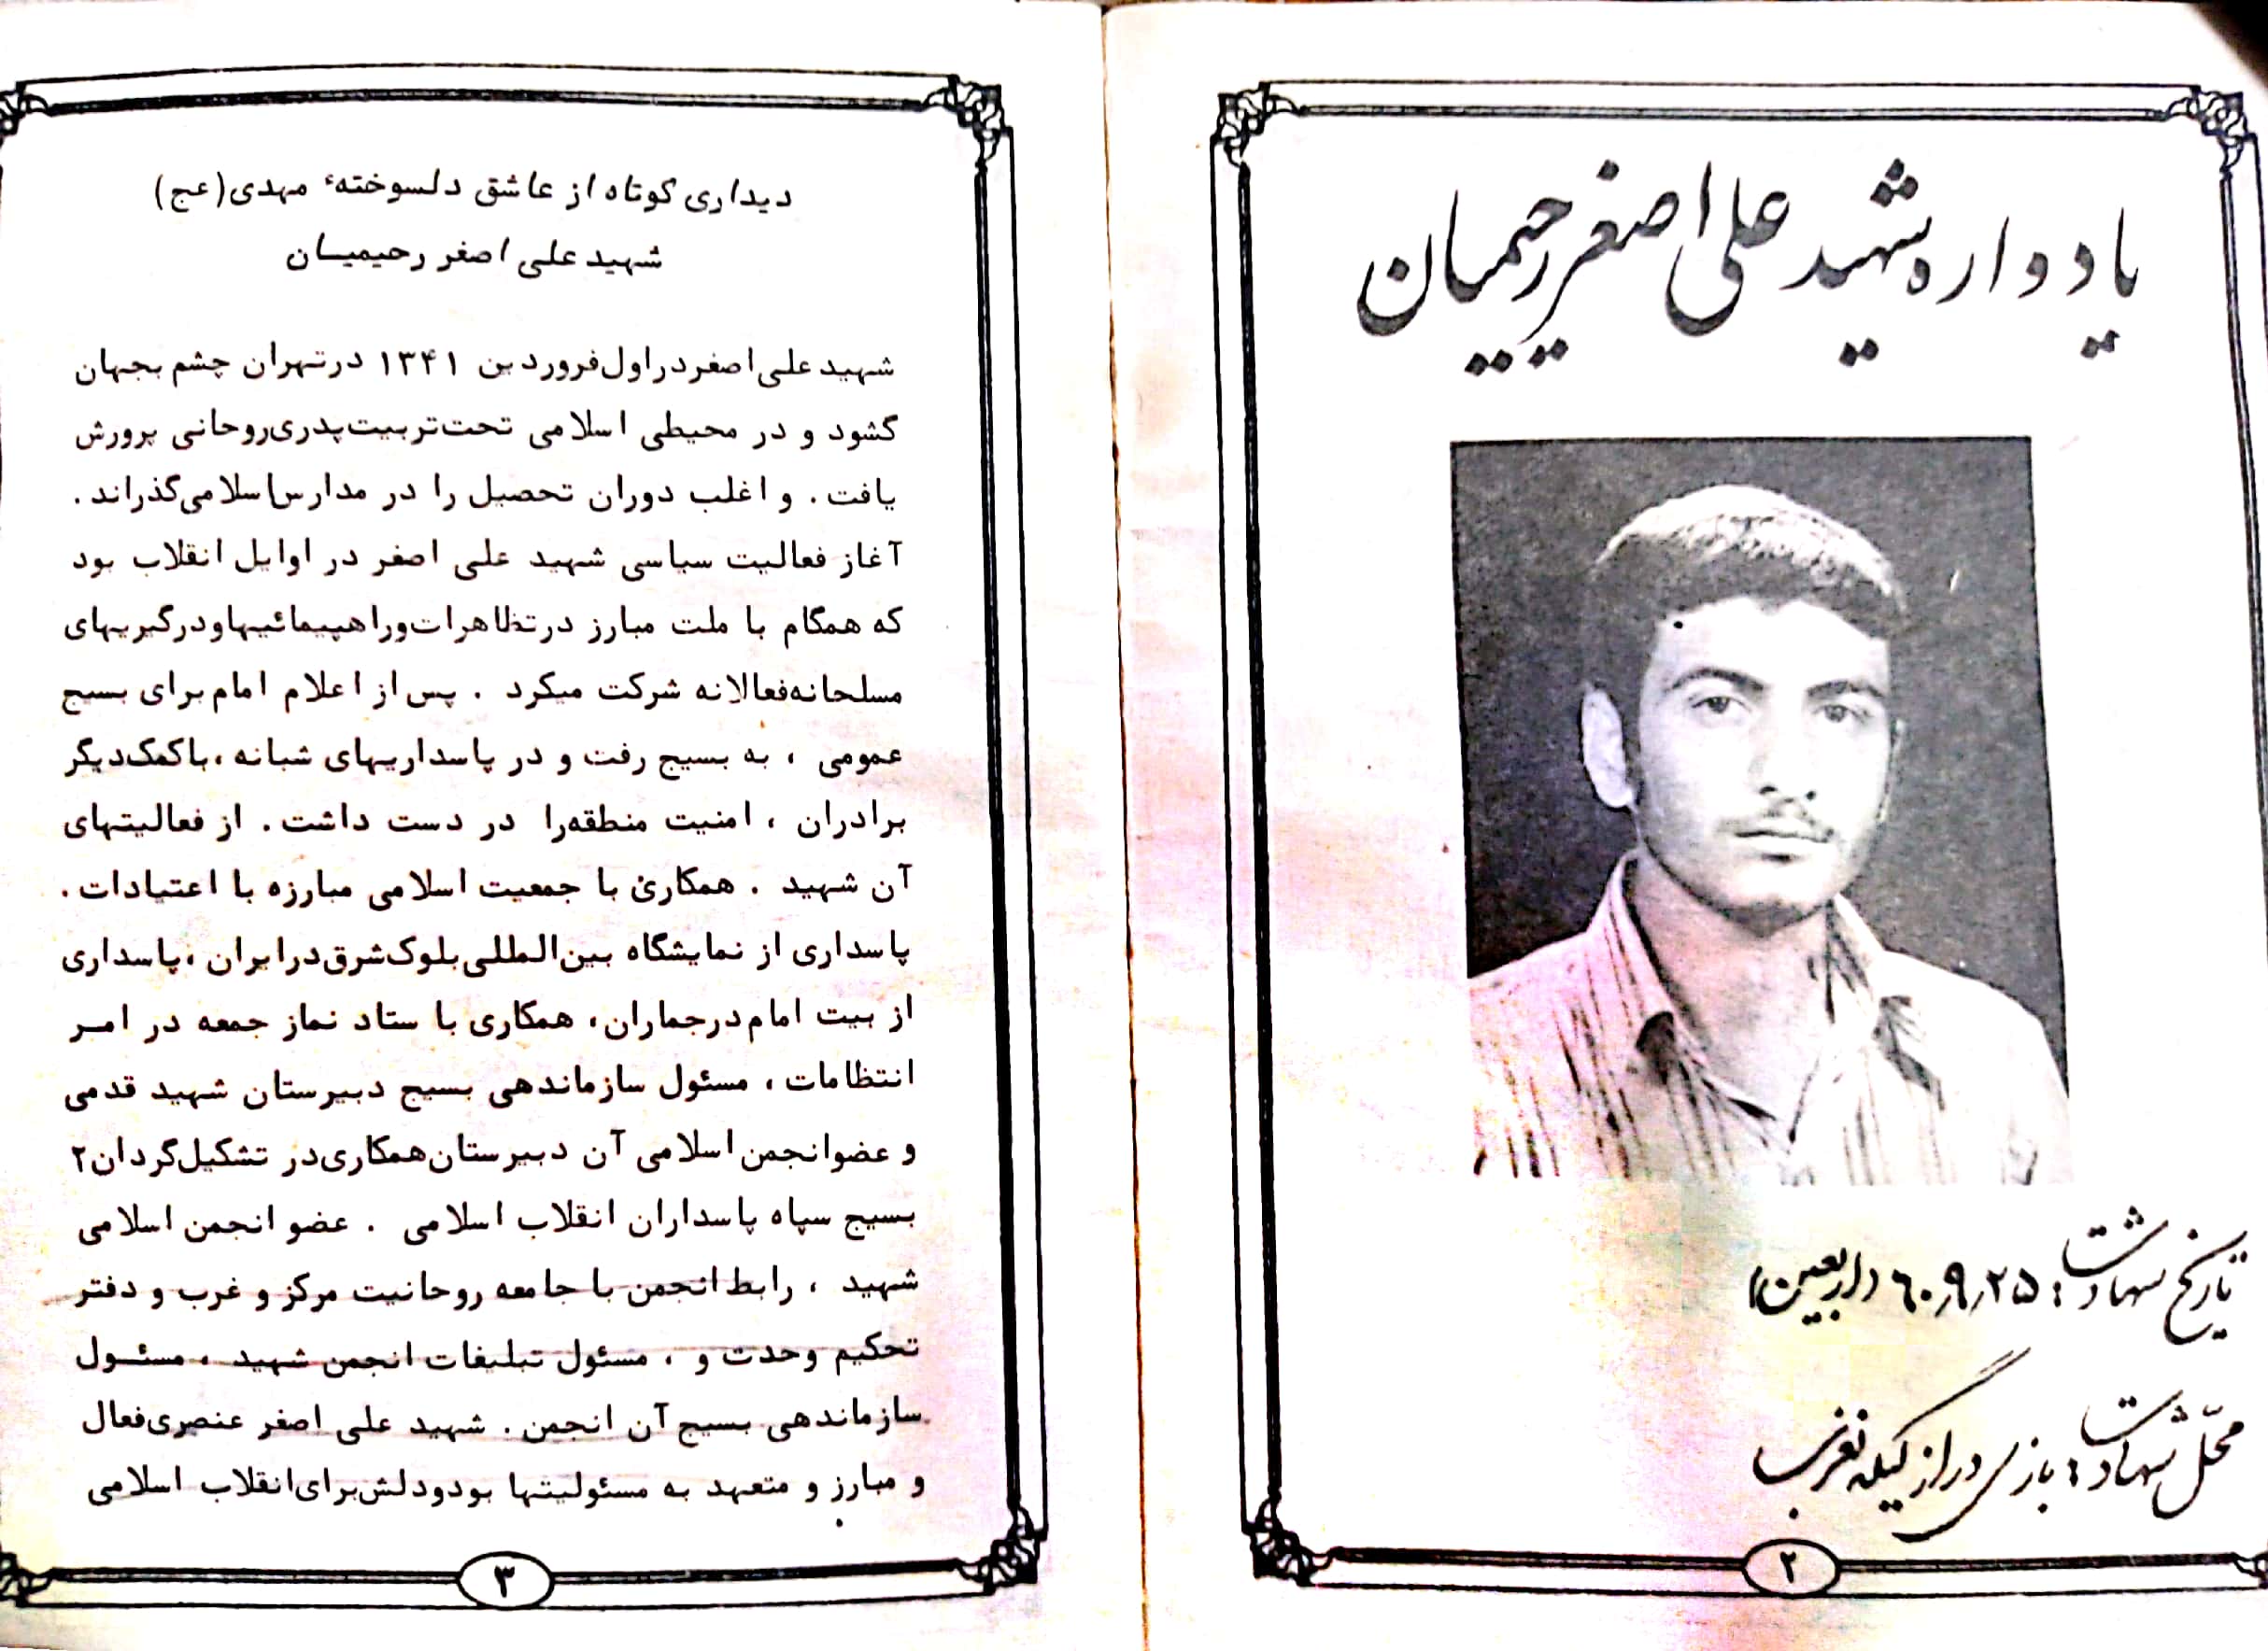 یادواره شهید علی اصغر رحیمیان
تاریخ شهادت: ۶۰٫۹٫۲۵ (اربعین)
محلّ شهادت: بازی دراز گیلانغرب
۲
دیداری کوتاه از عاشق دلسوختهٔ مهدی (عج)
شهید علی اصغر رحیمیان
شهید علی اصغر در اول فروردین ۱۳۴۱ در تهران چشم بجهان
گشود و در محیطی اسلامی تحت تربیت پدری روحانی پرورش
یافت. و اغلب دوران تحصیل را در مدارس اسلامی گذراند.
آغاز فعالیت سیاسی شهید علی اصغر در اوایل انقلاب بود
که همگام با ملت مبارز در تظاهرات و راهپیمائیها و درگیریهای
مسلحانه فعالانه شرکت میکرد. پس از اعلام امام برای بسیج
عمومی، به بسیج رفت و در پاسداریهای شبانه، با کمک دیگر
برادران، امنیت منطقه را در دست داشت. از فعالیتهای
آن شهید. همکاری با جمعیت اسلامی مبارزه با اعتیادات.
پاسداری از نمایشگاه بین‌المللی بلوک شرق در ایران، پاسداری
از بیت امام در جماران، همکاری با ستاد نماز جمعه در امر
انتظامات، مسئول سازماندهی بسیج دبیرستان شهید قدمی
و عضو انجمن اسلامی آن دبیرستان همکاری در تشکیل گردان ۲
بسیج سپاه پاسداران انقلاب اسلامی. عضو انجمن اسلامی
شهید، رابط انجمن با جامعه روحانیت مرکز و غرب و دفتر
تحکیم وحدت و، مسئول تبلیغات انجمن شهید، مسئول
سازماندهی بسیج آن انجمن. شهید علی اصغر عنصری فعال
و مبارز و متعهد به مسئولیتها بود و دلش برای انقلاب اسلامی
۳